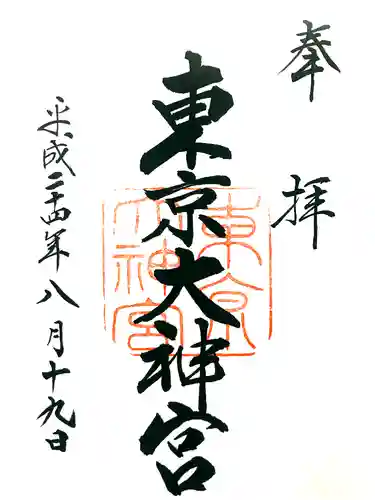 奉拝
東京大神宮
東京大神宮
平成二十四年八月十九日